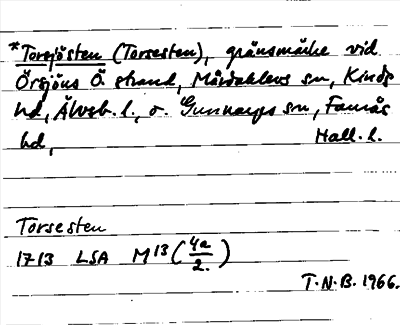 *Torsjösten (Torsesten), gränsmärke vid
Örsjöns Ö strand, Mårdaklevs sn, Kinds
hd, Älvsb. l., o. Gunnarps sn, Faurås
hd, Hall. l.
Torsesten
1713 LSA M13 (4a/2.)
T.N.B. 1966.